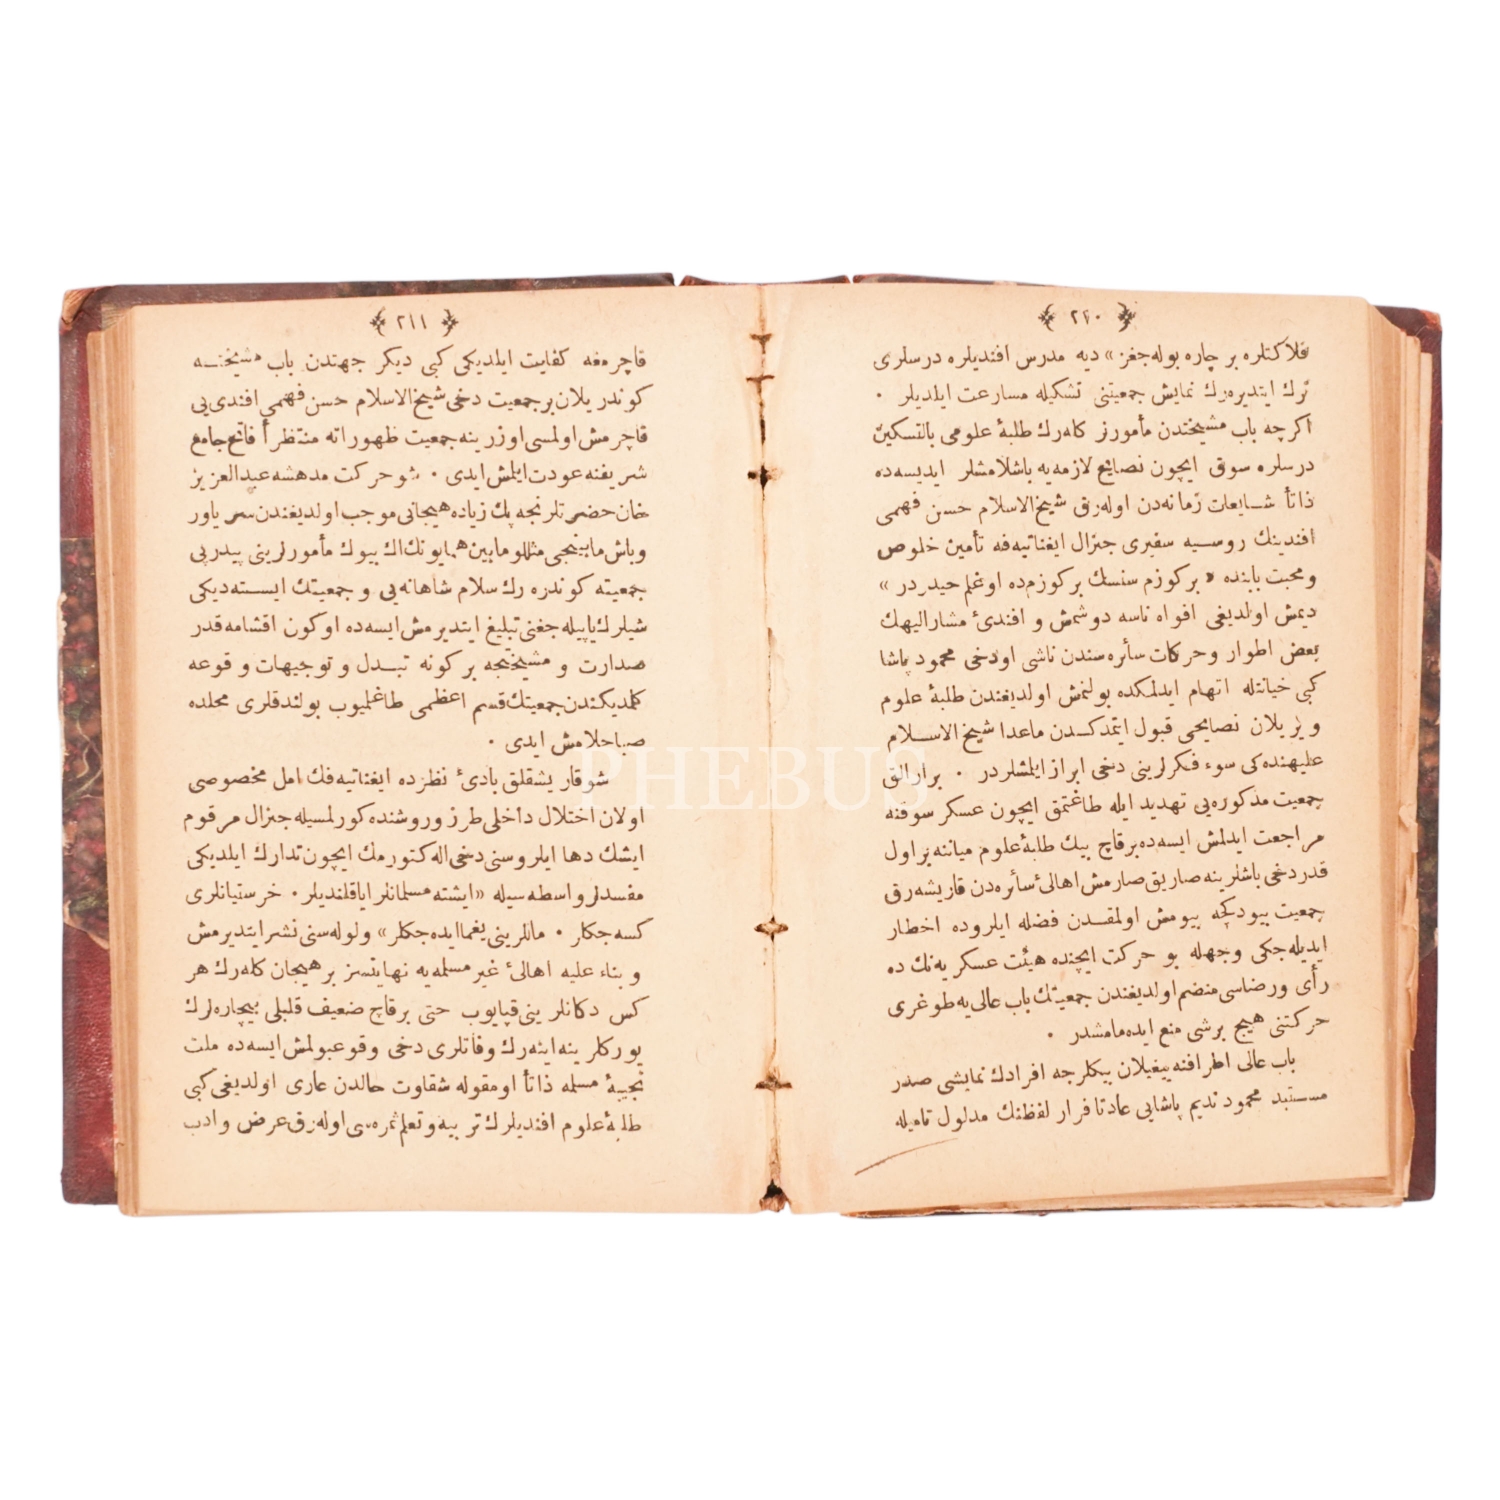 ٢٤٠
فلاكتلره بر چاره بوله‌جغز» ديه مدرس افنديلره درسلرى
ترك ايتديره‌رك نمايش جمعيتنى تشكيله مسارعت ايلديلر ٠
اكرچه باب مشيختدن مأمورلر كله‌رك طلبۀ علومى بالتسكين
درسلره سوق ايچون نصايح لازمه‌يه باشلامشلر ايديسه‌ده
ذاتاً شــايعات زمانه‌دن اوله‌رق شيخ‌الاسلام حسن فهمى
افندينك روســيه سفيرى جنرال ايغناتيه‌فه تأمين خلوص
و محبت بابنده « بر كوزم سنسك بر كوزمده اوغلم حيدردر »
ديمش اولديغى افواه ناسه دوشمش و افندئ مشاراليهك
بعض اطوار و حركات سأره‌سندن ناشى اودخى محمود پاشا
كبى خيانتله اتهام ايدلمكده بولنمش اولديغندن طلبۀ علوم
ويريلان نصايحى قبول ايتمدكــدن ماعدا شيخ‌الاســلام
عليهنده‌كى سوء فكرلرينى دخى ابراز ايلمشلردر ٠ بر ارالق
جمعيت مذكوره‌يى تهديد ايله طاغتمق ايچون عسكر سوقنه
مراجعت ايدلمش ايسه‌ده برقاچ بيك طلبۀ علوم مياننه بر اول
قدر دخى باشلرينه صاريق صارمش اهالئ سأره‌دن قاريشه‌رق
جمعيت بيودكجه بيومش اولمقــدن فضله ايلروده اخطار
ايديله‌جكى وجهله بو حركت ايچنده هيئت عسكريه‌نك ده
رأى و رضاسى منضم اولديغندن جمعيتك باب عالى‌يه طوغرى
حركتنى هيچ برشى منع ايده‌مامشدر ٠
باب عالى اطرافنه ييغيلان بيكلرجه افرادك نمايشى صدر
مستبد محمود نديم پاشايى عادتا فرار لفظنك مدلول تاميله
٢١١
قاچرمغه كفايت ايلديكى كبى ديكر جهتدن باب مشيختــه
كوندريلان بر جمعيت دخى شيخ‌الاسلام حسن فهمى افندى‌يى
قاچرمش اولمسى اوزرينه جمعيت ظهوراته منتظراً فاتح جامع
شريفنه عودت ايلمش ايدى ٠ شو حركت مدهشه عبدالعزيز
خان حضرتلرنجه پك زياده هيجانى موجب اولديغندن سر ياور
و باش مابينجى مثللو مابين همايونك اك بيوك مأمورلرينى پيدرپى
جمعيته كوندره‌رك سلام شاهانه‌يى و جمعيتك ايســته‌ديكى
شيلرك ياپيله‌جغنى تبليغ ايتديرمش ايسه‌ده او كون اقشامه قدر
صدارت و مشيختجه بر كونه تبــدل و توجيهات وقوعه
كلمديكندن جمعيتك قسم اعظمى طاغلميوب بولندقلرى محلده
صباحلامش ايدى ٠
شو قاريشقلق بادئ نظرده ايغناتيه‌فك امل مخصوصى
اولان اختلال داخلى طرز و روشنده كورلمسيله جنرال مرقوم
ايشك دها ايلروسنى دخى اله كتورمك ايچون تدارك ايلديكى
مفسدلر واسطه‌سيله «ايشته مسلمانلر اياقلنديلر ٠ خرستيانلرى
كسه‌جكلر ٠ ماللرينى يغما ايده‌جكلر» ولوله‌سنى نشر ايتديرمش
و بناء عليه اهالئ غير مسلمه‌يه نهايتسز بر هيجان كله‌رك هر
كس دكانلرينى قپايوب حتى برقاچ ضعيف قلبلى بيچاره‌لرك
يوركلرينه اينه‌رك وفاتلرى دخى وقوعبولمش ايسه‌ده ملت
نجيبۀ مسلمه ذاتاً اومقوله شقاوت حالدن عارى اولديغى كبى
طلبۀ علوم افنديلرك تربيه و تعلم ثمره‌سى اوله‌رق عرض و ادب
PHEBUS